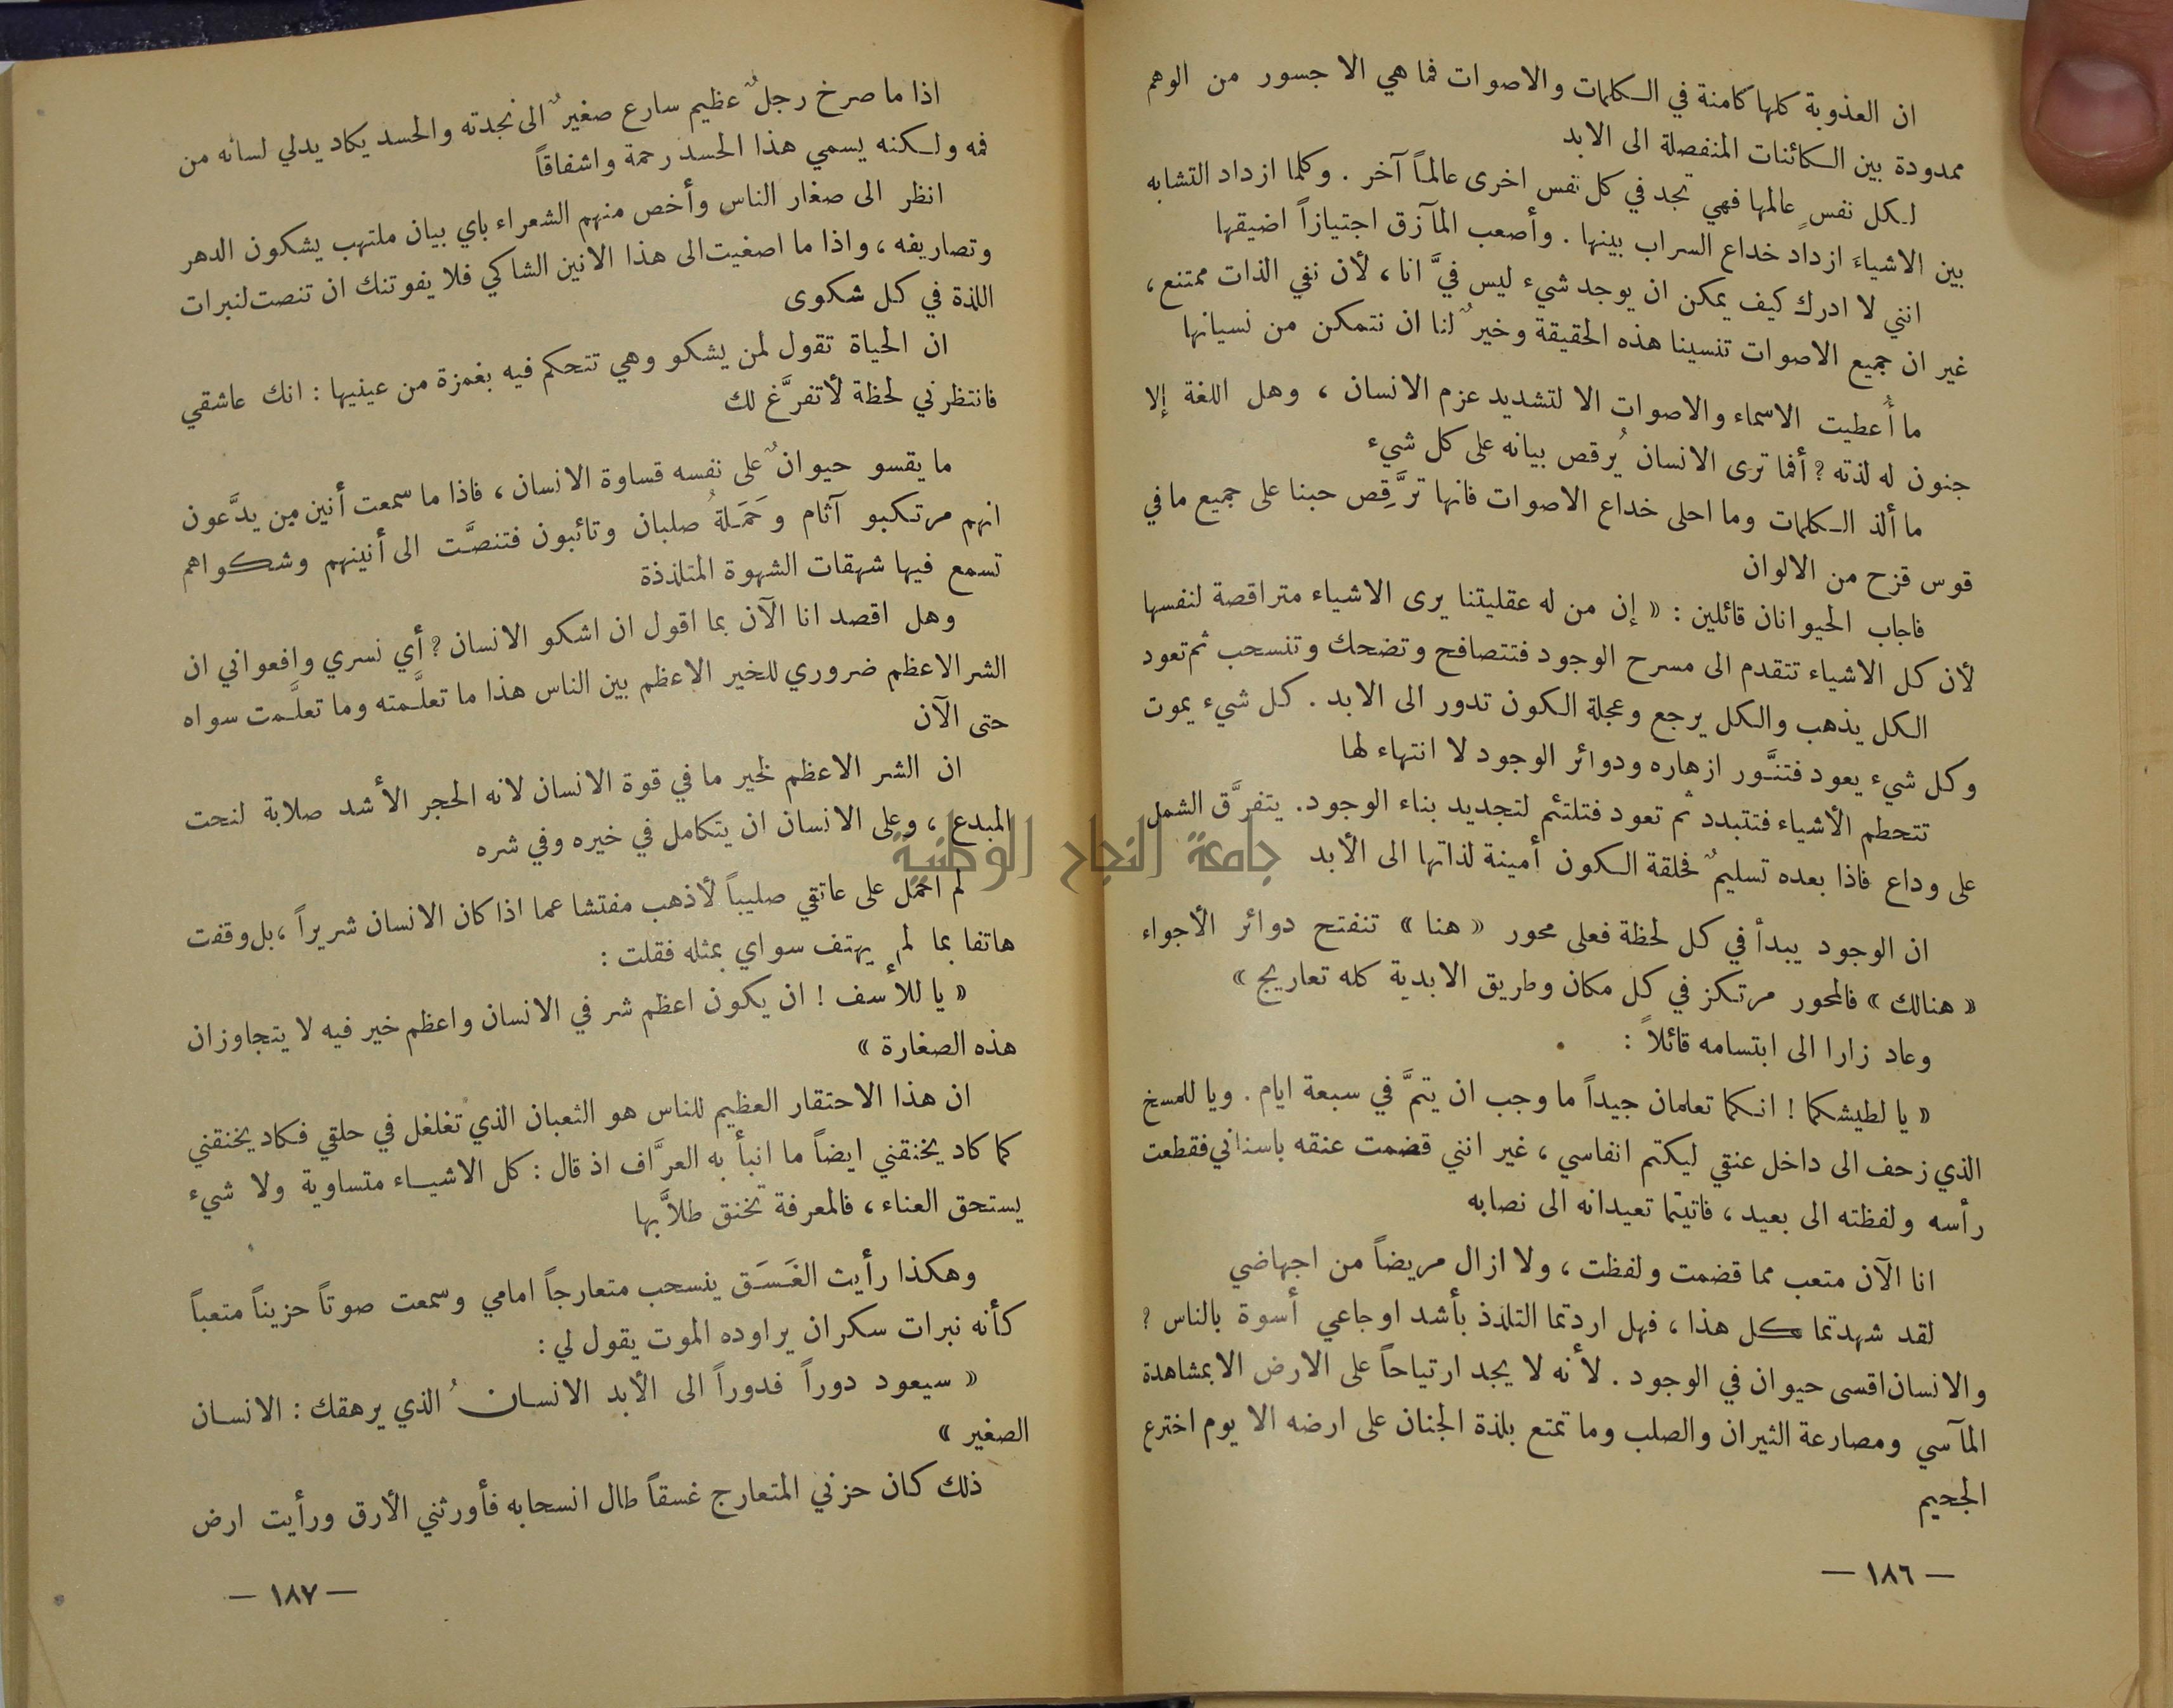 ان العذوبة كلها كامنة في الكلمات والاصوات فما هي الا جسور من الوهم
ممدودة بين الكائنات المنفصلة الى الابد
لكل نفسٍ عالمها فهي تجد في كل نفس اخرى عالماً آخر . وكلما ازداد التشابه
بين الاشياءَ ازداد خداع السراب بينها . وأصعب المآزق اجتيازاً اضيقها
انني لا ادرك كيف يمكن ان يوجد شيء ليس فيَّ انا ، لأن نفي الذات ممتنع ،
غير ان جميع الاصوات تنسينا هذه الحقيقة وخيرٌ لنا ان نتمكن من نسيانها
ما أُعطيت الاسماء والاصوات الا لتشديد عزم الانسان ، وهل اللغة إلا
جنون له لذته ? أفما ترى الانسان يُرقص بيانه على كل شيء
ما ألذ الكلمات وما احلى خداع الاصوات فانها ترَّقِص حبنا على جميع ما في
قوس قزح من الالوان
فاجاب الحيوانان قائلين : « إن من له عقليتنا يرى الاشياء متراقصة لنفسها
لأن كل الاشياء تتقدم الى مسرح الوجود فتتصافح وتضحك وتنسحب ثم تعود
الكل يذهب والكل يرجع وعجلة الكون تدور الى الابد . كل شيء يموت
وكل شيء يعود فتنوَّر ازهاره ودوائر الوجود لا انتهاء لها
تتحطم الأشياء فتتبدد ثم تعود فتلتئم لتجديد بناء الوجود. يتفرَّق الشمل
على وداع فاذا بعده تسليمٌ فحلقة الكون أمينة لذاتها الى الأبد
ان الوجود يبدأ في كل لحظة فعلى محور « هنا » تنفتح دوائر الأجواء
« هنالك » فالمحور مرتكز في كل مكان وطريق الابدية كله تعاريج »
وعاد زارا الى ابتسامه قائلاً :
« يا لطيشكما ! انكما تعلمان جيداً ما وجب ان يتمَّ في سبعة ايام . ويا للمسخ
الذي زحف الى داخل عنقي ليكتم انفاسي ، غير انني قضمت عنقه باسناني فقطعت
رأسه ولفظته الى بعيد ، فاتيتما تعيدانه الى نصابه
انا الآن متعب مما قضمت ولفظت ، ولا ازال مريضاً من اجهاضي
لقد شهدتما كل هذا ، فهل اردتما التلذذ بأشد اوجاعي أسوة بالناس ?
والانسان اقسى حيوان في الوجود . لأنه لا يجد ارتياحاً على الارض الا بمشاهدة
المآسي ومصارعة الثيران والصلب وما تمتع بلذة الجنان على ارضه الا يوم اخترع
الجحيم
— ١٨٦ —
اذا ما صرخ رجلٌ عظيم سارع صغيرٌ الى نجدته والحسد يكاد يدلي لسانه من
فمه ولكنه يسمي هذا الحسد رحمة واشفاقاً
انظر الى صغار الناس وأخص منهم الشعراء باي بيان ملتهب يشكون الدهر
وتصاريفه ، واذا ما اصغيت الى هذا الانين الشاكي فلا يفوتنك ان تنصت لنبرات
اللذة في كل شكوى
ان الحياة تقول لمن يشكو وهي تتحكم فيه بغمزة من عينيها : انك عاشقي
فانتظرني لحظة لأتفرَّغ لك
ما يقسو حيوانٌ على نفسه قساوة الانسان ، فاذا ما سمعت أنين من يدَّعون
انهم مرتكبو آثام وحَمَلةُ صلبان وتائبون فتنصَّت الى أنينهم وشكواهم
تسمع فيها شهقات الشهوة المتلذذة
وهل اقصد انا الآن بما اقول ان اشكو الانسان ? أي نسري وافعواني ان
الشر الاعظم ضروري للخير الاعظم بين الناس هذا ما تعلَّمته وما تعلَّمت سواه
حتى الآن
ان الشر الاعظم لخير ما في قوة الانسان لانه الحجر الأشد صلابة لنحت
المبدع ، وعلى الانسان ان يتكامل في خيره وفي شره
لم احمل على عاتقي صليباً لأذهب مفتشا عما اذا كان الانسان شريراً ، بل وقفت
هاتفا بما لم يهتف سواي بمثله فقلت :
« يا للأسف ! ان يكون اعظم شر في الانسان واعظم خير فيه لا يتجاوزان
هذه الصغارة »
ان هذا الاحتقار العظيم للناس هو الثعبان الذي تغلغل في حلقي فكاد يخنقني
كما كاد يخنقني ايضاً ما انبأ به العرَّاف اذ قال : كل الاشياء متساوية ولا شيء
يستحق العناء ، فالمعرفة تخنق طلاَّبها
وهكذا رأيت الغَسَق ينسحب متعارجاً امامي وسمعت صوتاً حزيناً متعباً
كأنه نبرات سكران يراوده الموت يقول لي :
« سيعود دوراً فدوراً الى الأبد الانسانُ الذي يرهقك : الانسان
الصغير »
ذلك كان حزني المتعارج غسقاً طال انسحابه فأورثني الأرق ورأيت ارض
— ١٨٧ —
جامعة النجاح الوطنية